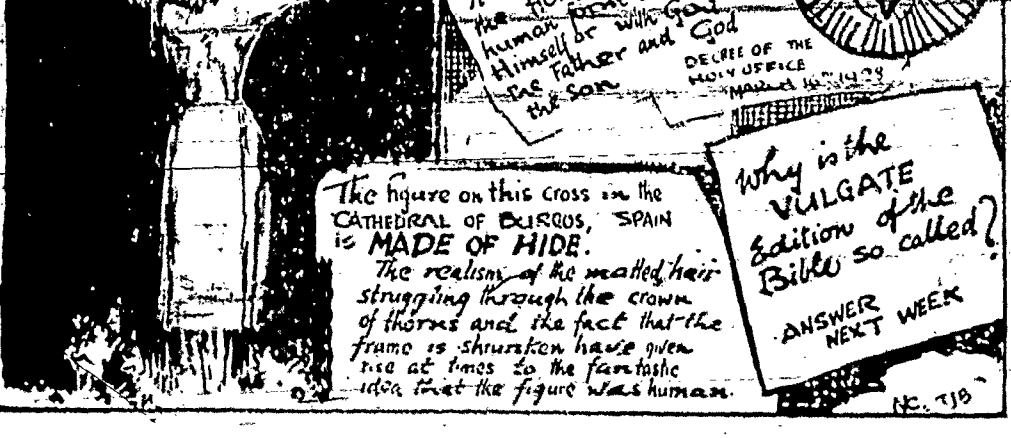 the
human
Himself or with God
the Father and God
the son
DECREE OF THE
HOLY OFFICE
The figure on this cross in the
CATHEDRAL OF BURGOS, SPAIN
is MADE OF HIDE.
The realism of the matted hair
struggling through the crown
of thorns and the fact that the
frame is shrunken have given
rise at times to the fantastic
idea that the figure was human.
Why is the
VULGATE
Edition of the
Bible so called?
ANSWER
NEXT WEEK